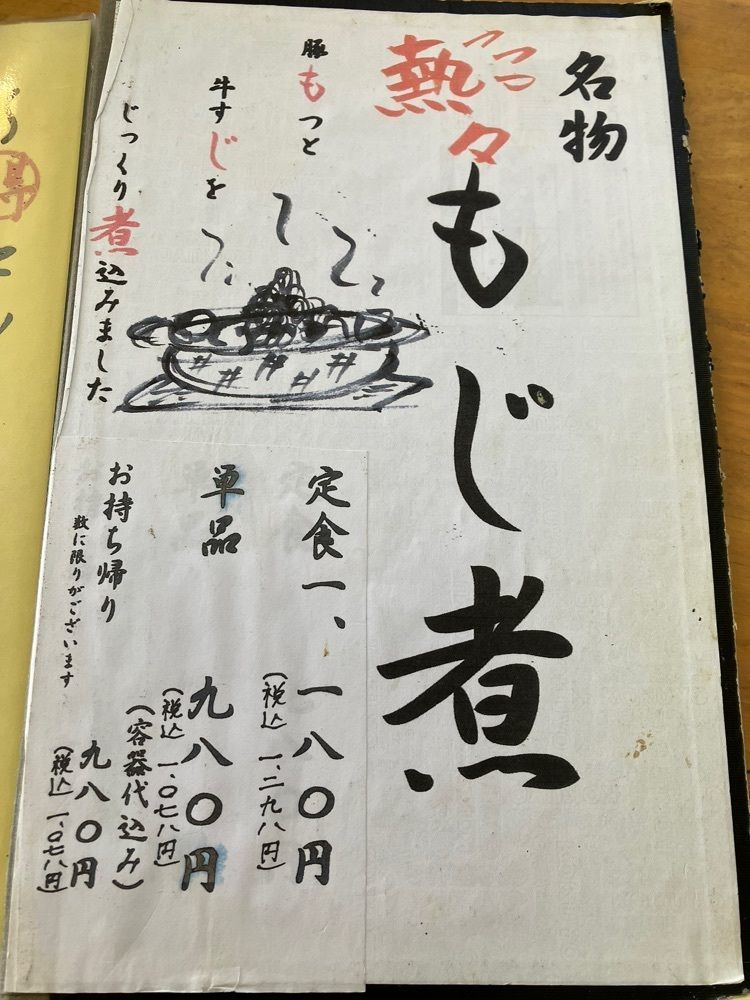 名物
熱々
もじ煮
豚もつと
牛すじを
じっくり煮込みました
定食一、一八〇円
(税込 一、二九八円)
単品 九八〇円
(税込 一、〇七八円)
お持ち帰り (容器代込み) 九八〇円
数に限りがございます
(税込 一、〇七八円)